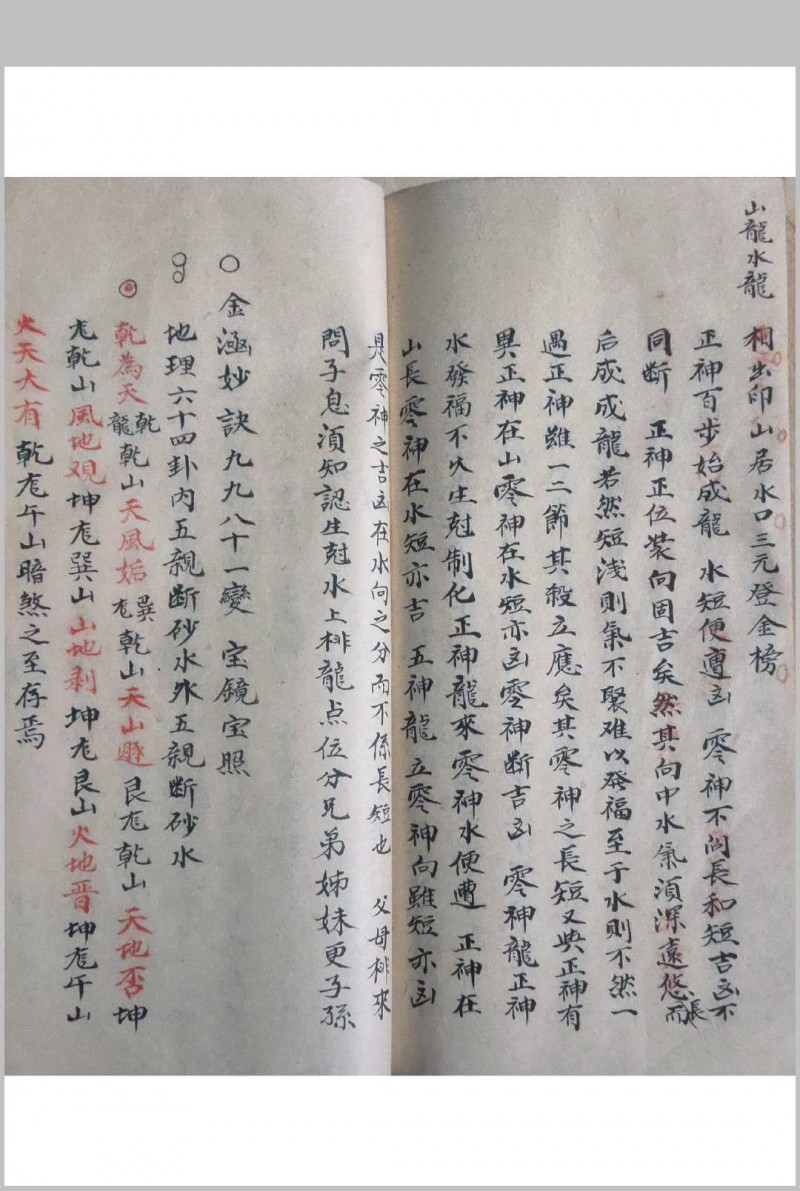 山龍水龍
相出印山居水口三元登金榜
正神百步始成龍 水短便遭凶 零神不问長和短吉凶不
同断 正神正位裝向固吉矣然其向中水氣須深遠悠長而
后成成龍若然短浅則氣不聚难以發福至于水則不然一
遇正神雖一二節其殺立應矣其零神之長短又與正神有
異正神在山零神在水短亦凶零神断吉凶 零神龍正神
水發福不久生尅制化正神龍來零神水便遭 正神在
山長零神在水短亦吉 五神龍立零神向雖短亦凶
是零神之吉凶在水向之分而不係長短也 父母排來
問子息須知認生尅水上排龍点位分兄弟姊妹更子孫
○金涵妙訣九九八十一變 宝鏡宝照
地理六十四卦內五親断砂水外五親断砂水
乾為天乾龍乾山天風姤巽龙乾山天山遯艮龙乾山天地否坤
龙乾山風地观坤龙巽山山地剥坤龙艮山火地晋坤龙午山
火天大有乾龙午山暗煞之至存焉